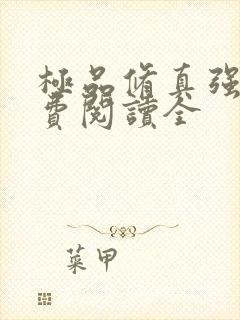 極品修真強
費閱讀全
菜甲